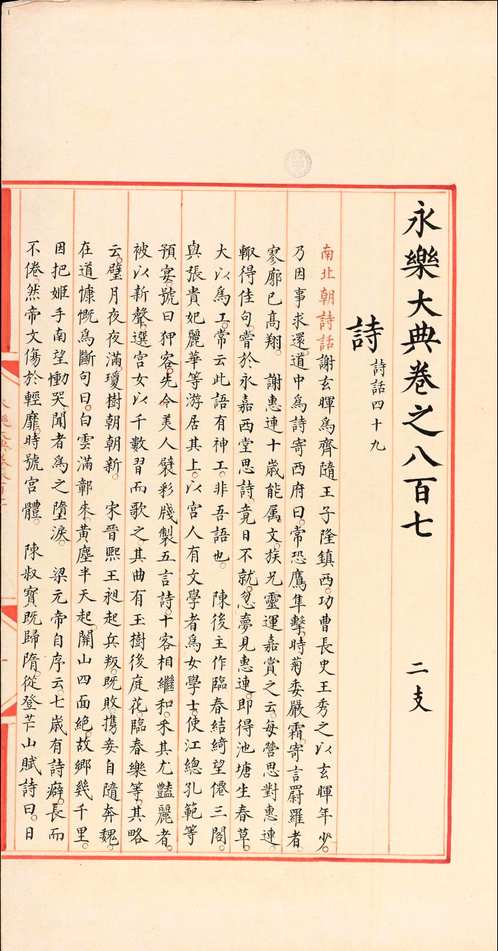 永樂大典卷之八百七
二支
詩
詩話四十九
南北朝詩話謝玄暉爲齊隨王子隆鎮西。功曹長史王秀之以玄暉年少。
乃因事求還道中爲詩寄西府曰。常恐鷹隼擊。時菊委嚴霜。寄言罻羅者
寥廓已高翔。謝惠連十歲能屬文族兄靈運嘉賞之云。每營思對惠連
輙得佳句。嘗於永嘉西堂思詩。竟日不就。忽夢見惠連。即得池塘生春草。
大以爲工。常云此語有神工。非吾語也。陳後主作臨春結綺望僊三閣
與張貴妃麗華等游居其上。以宮人有文學者爲女學士。使江總孔範等
預宴。號曰狎客。先令美人襞彩牋製五言詩。十客相繼和。釆其尤豔麗者。
被以新聲。選宮女以千數習而歌之其曲有玉樹後庭花臨春樂等。其略
云。璧月夜夜滿瓊樹朝朝新。宋晉熙王昶起兵叛既敗携妾自隨奔魏。
在道慷慨爲斷句曰。白雲滿鄣來。黃塵半天起關山四面絶故鄉幾千里。
因把姬手南望慟哭聞者爲之墮淚。梁元帝自序云。七歲有詩癖。長而
不倦然帝文傷於輕靡。時號宮體。陳叔寶既歸隋從登芒山賦詩曰。日